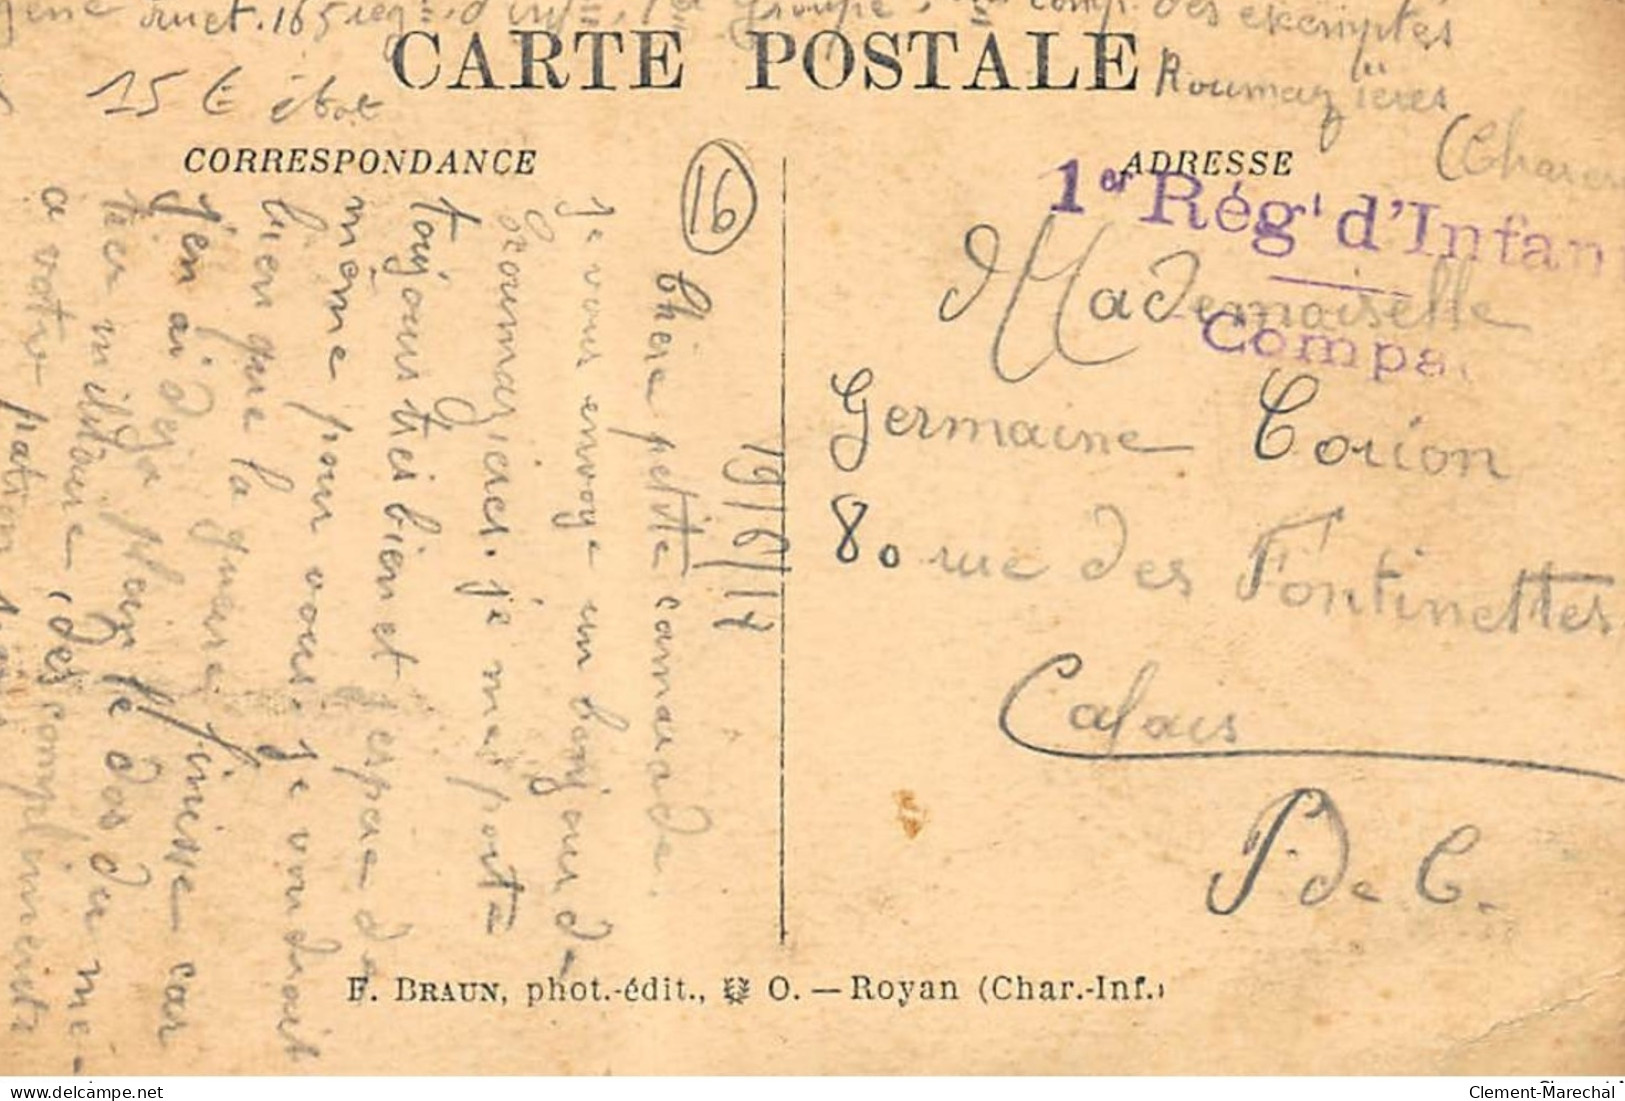 165 rég. d'inf. groupe, comp. des exemptés
Roumazières
(Charen
15 € état
CARTE POSTALE
CORRESPONDANCE
16
19/6/17
Chère petite camarade.
je vous envoye un bonjour de
Roumazières. je me porte
toujours très bien et j'espae de
même pour vous. je voudrait
bien que la guerre finisse car
j'en ai déja plein le dos du mé-
tier militaire, des compliments
a votre patron
ADRESSE
1er Régt d'Infan
Compa
Mademoiselle
Germaine Corion
80 rue des Fontinettes
Calais
P. de C.
F. BRAUN, phot.-édit., O. — Royan (Char.-Inf.)
delcampe.net
Clement-Marechal